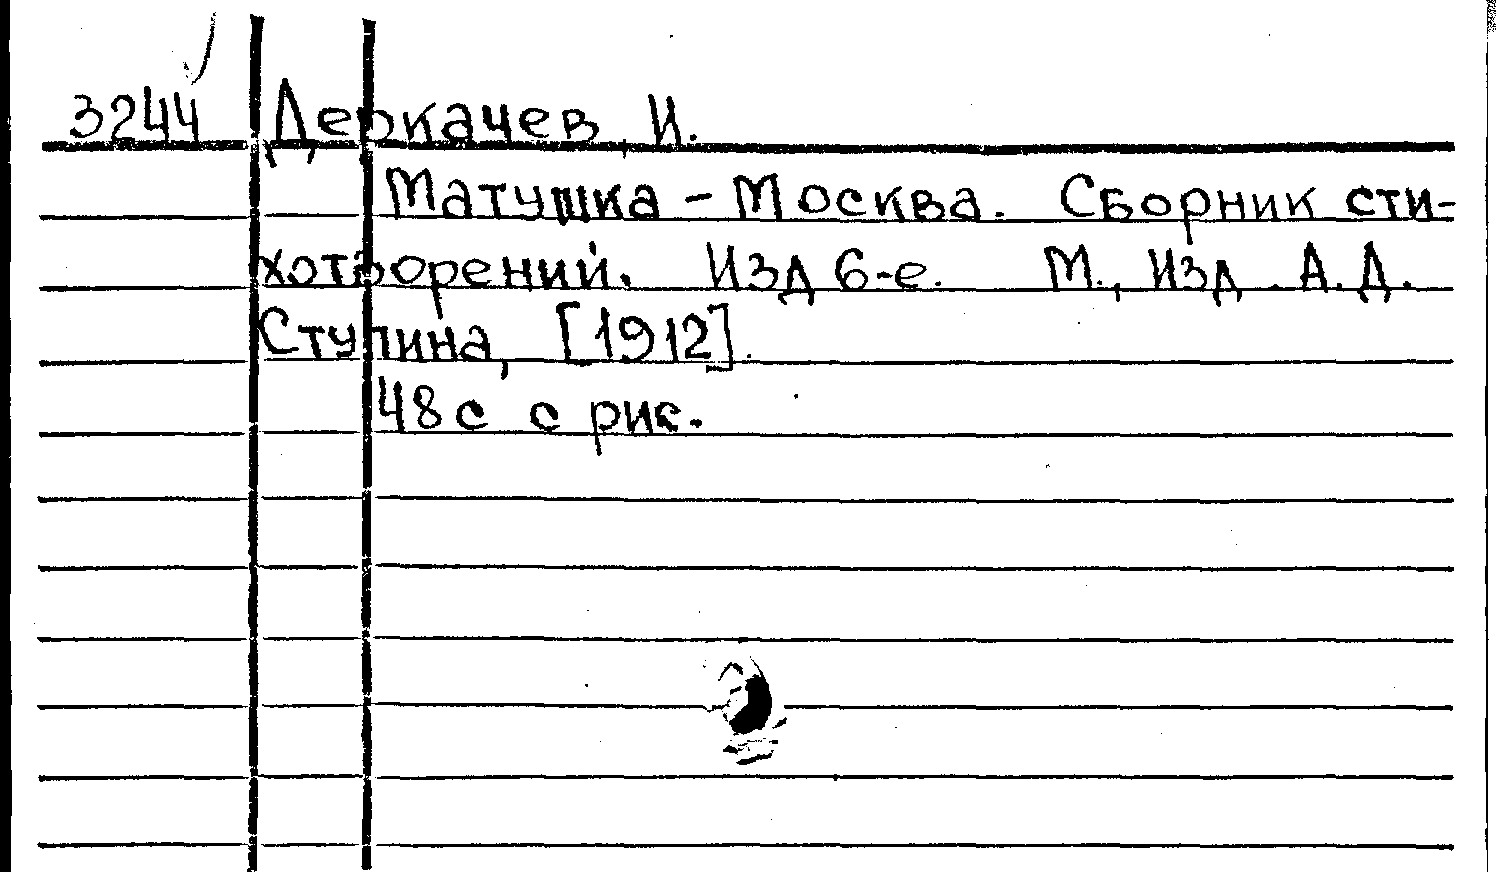 3244 Деркачев, И.
Матушка - Москва. Сборник сти-
хотворений. Изд 6-е. М., Изд. А. Д.
Ступина, [1912].
48 с с рис.